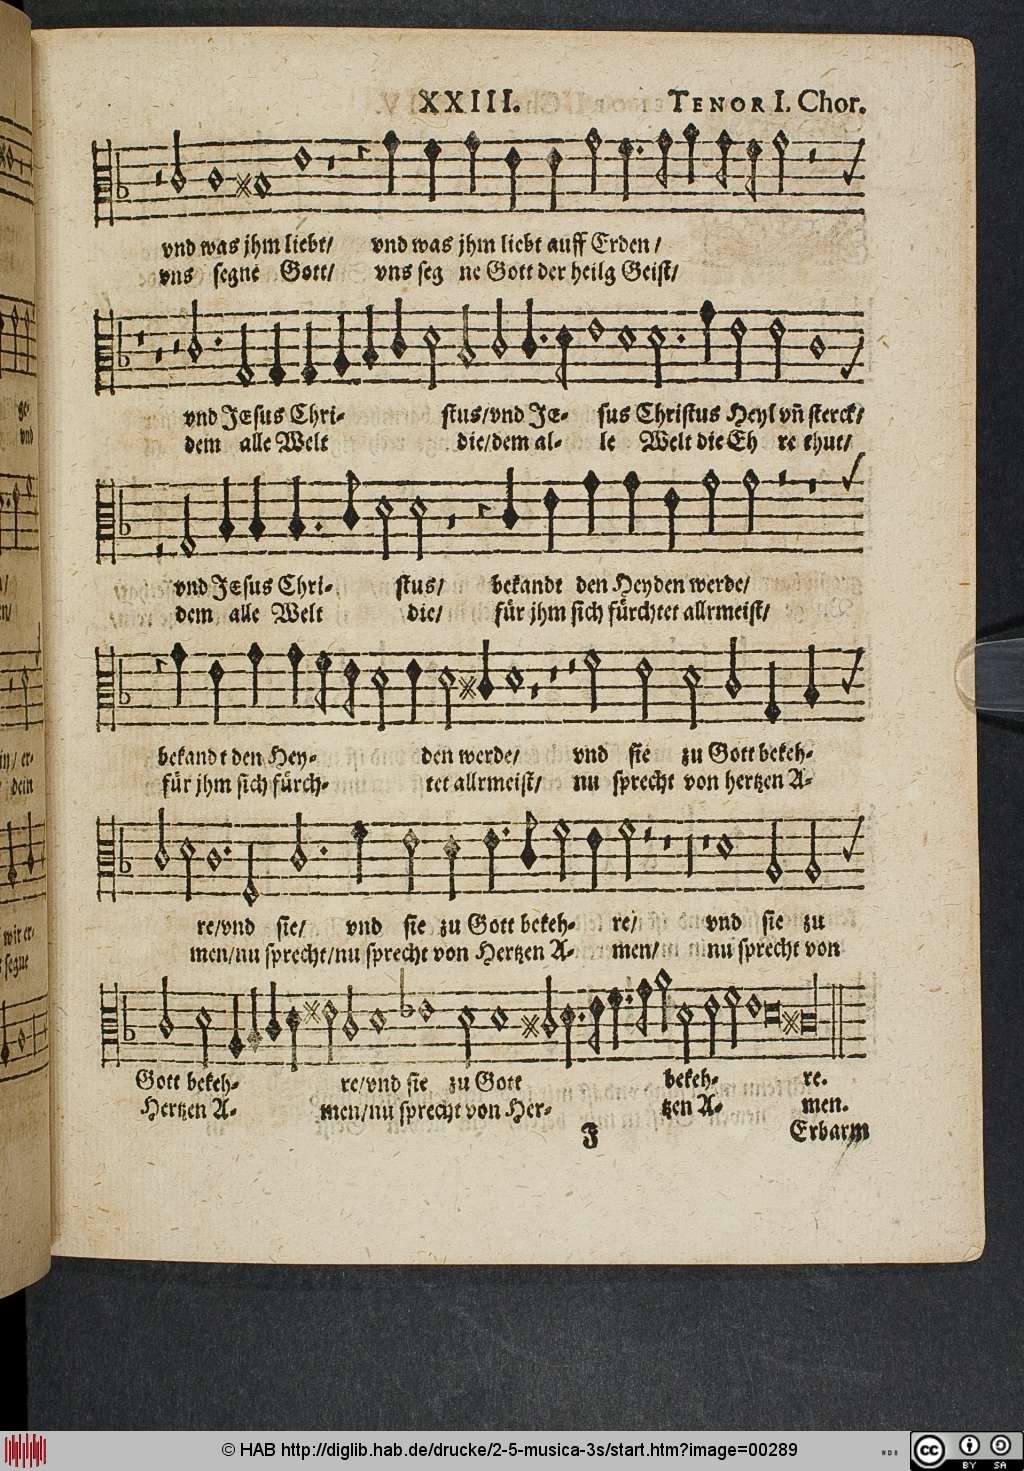 XXIII. TENOR I. Chor.
vnd was jhm liebt/ vnd was jhm liebt auff Erden/
vns segne Gott/ vns seg ne Gott der heilg Geist/
vnd JEsus Chri- stus/vnd JE- sus Christus Heyl vñ sterck/
dem alle Welt die/dem al- le Welt die Eh re thut/
vnd JEsus Chri- stus/ bekandt den Heyden werde/
dem alle Welt die/ für jhm sich fürchtet allrmeist/
bekandt den Hey- den werde/ vnd sie zu Gott bekeh-
für jhm sich fürch- tet allrmeist/ nu sprecht von hertzen A-
re/vnd sie/ vnd sie zu Gott bekeh- re/ vnd sie zu
men/nu sprecht/nu sprecht von Hertzen A- men/ nu sprecht von
Gott bekeh- re/vnd sie zu Gott bekeh- re.
Hertzen A- men/nu sprecht von Her- tzen A- men.
J Erbarm
© HAB http://diglib.hab.de/drucke/2-5-musica-3s/start.htm?image=00289
WDB
cc BY SA